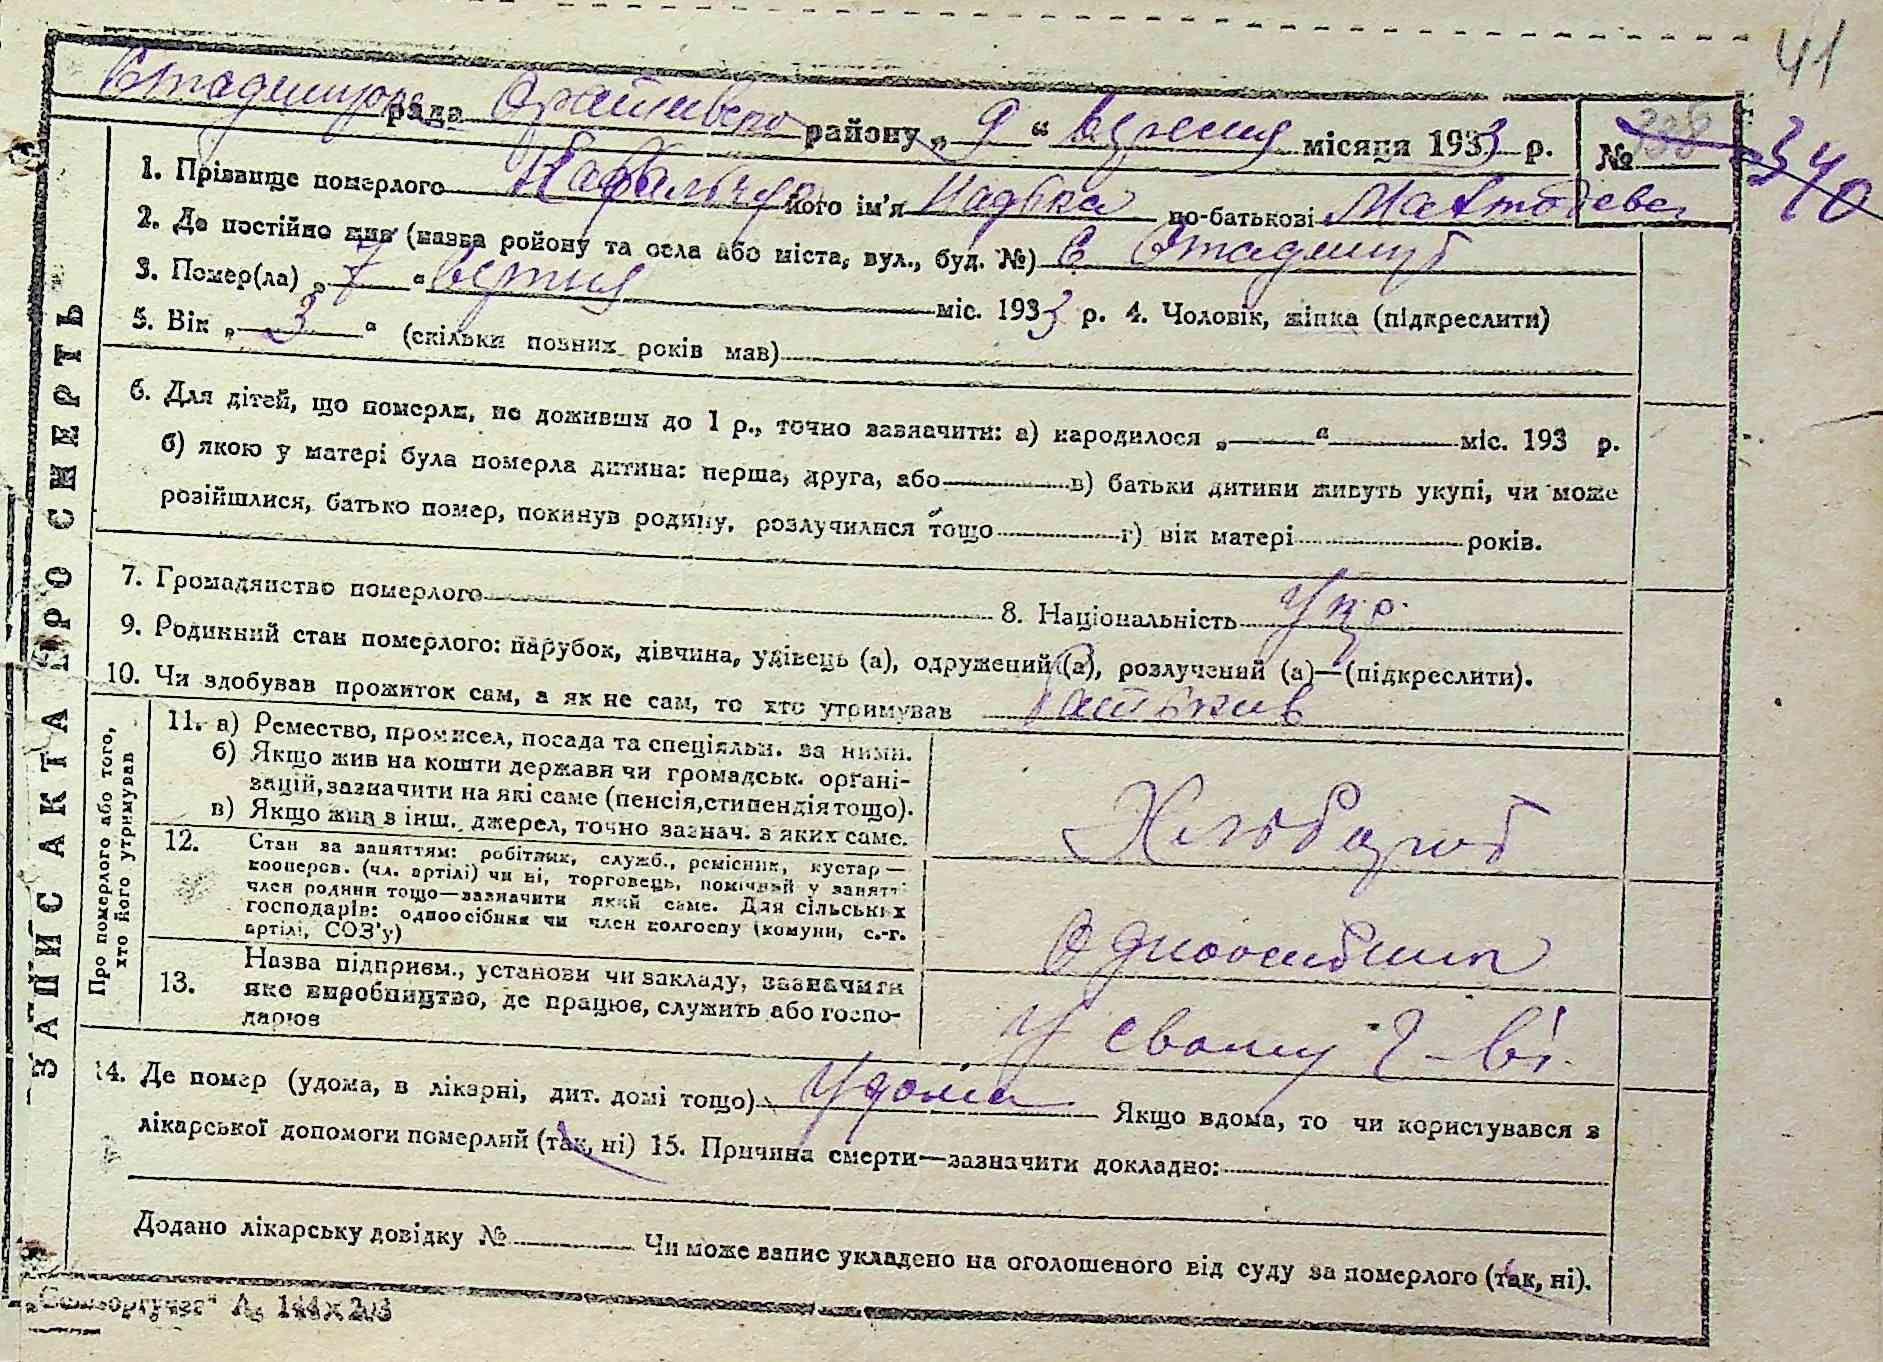 41
рада Оратівського району „ 9 “ вересня місяця 1933 р. № 338 340
1. Прізвище померлого його ім'я Надька по-батькові
2. Де постійно жив (назва району та села або міста, вул., буд. №) с
3. Помер(ла) „ 7 “ вересня міс. 1933 р. 4. Чоловік, жінка (підкреслити)
5. Вік „ 3 “ (скільки повних років мав)
6. Для дітей, що померли, не доживши до 1 р., точно зазначити: а) народилося „ “ міс. 193 р.
б) якою у матері була померла дитина: перша, друга, або в) батьки дитини живуть укупі, чи може
розійшлися, батько помер, покинув родину, розлучилися тощо г) вік матері років.
7. Громадянство померлого 8. Національність Укр.
9. Родинний стан померлого: парубок, дівчина, удівець (а), одружений (а), розлучений (а)—(підкреслити).
10. Чи здобував прожиток сам, а як не сам, то хто утримував
ЗАПИС АКТА ПРО СМЕРТЬ
Про померлого або того,
хто його утримував
11. а) Ремество, промисел, посада та спеціяльн. за ними.
б) Якщо жив на кошти держави чи громадськ. органі-
зацій, зазначити на які саме (пенсія, стипендія тощо).
в) Якщо жив з інш. джерел, точно зазнач. з яких саме.
Хлібороб
12. Стан за заняттям: робітник, служб., ремісник, кустар—
кооперов. (чл. артілі) чи ні, торговець, помічний у занятті
член родини тощо—зазначити який саме. Для сільських
господарів: одноосібник чи член колгоспу (комуни, с.-г.
артілі, СОЗ'у)
Одноосібник
13. Назва підприєм., установи чи закладу, зазначити
яке виробництво, де працює, служить або госпо-
дарює
У своему г-ві
14. Де помер (удома, в лікарні, дит. домі тощо) Удома Якщо вдома, то чи користувався з
лікарської допомоги померлий (так, ні) 15. Причина смерти—зазначити докладно:
Додано лікарську довідку № Чи може запис укладено на оголошеного від суду за померлого (так, ні).